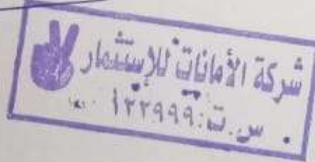 شركة الأمانات للإستثمار
س.ت: ١٢٢٩٩٩